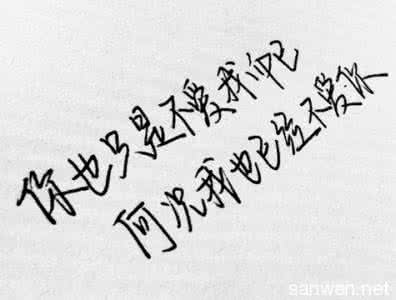 你也只是不爱我而已
何况我也已经不爱你
sanwen.net